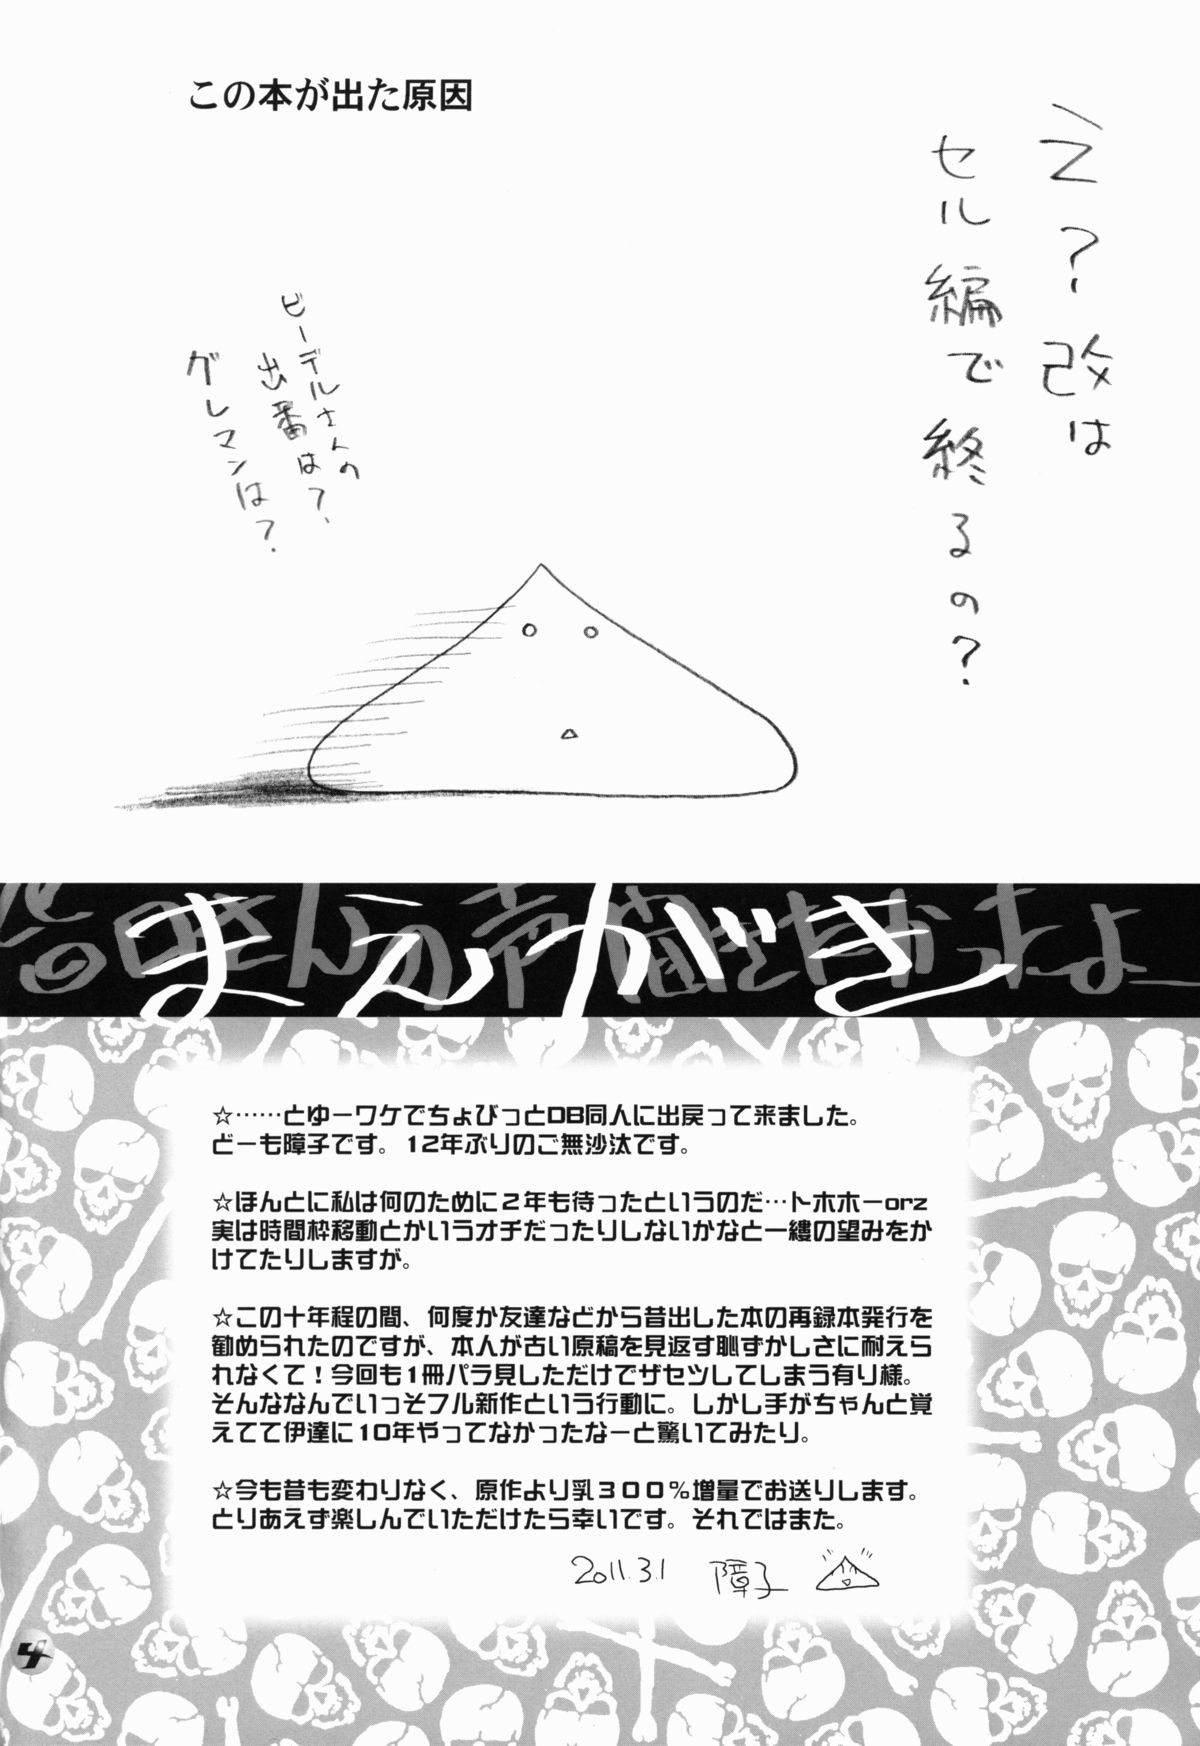 この本が出た原因
え？改は
セル編で終るの？
ビーデルさんの
出番は？、
グレマンは？
まえがき
☆……とゆーワケでちょびっとDB同人に出戻って来ました。
どーも障子です。12年ぶりのご無沙汰です。
☆ほんとに私は何のために２年も待ったというのだ…トホホーorz
実は時間枠移動とかいうオチだったりしないかなと一縷の望みをか
けてたりしますが。
☆この十年程の間、何度か友達などから昔出した本の再録本発行を
勧められたのですが、本人が古い原稿を見返す恥ずかしさに耐えら
れなくて！今回も1冊パラ見しただけでザセツしてしまう有り様。
そんななんでいっそフル新作という行動に。しかし手がちゃんと覚
えてて伊達に10年やってなかったなーと驚いてみたり。
☆今も昔も変わりなく、原作より乳３００％増量でお送りします。
とりあえず楽しんでいただけたら幸いです。それではまた。
2011.3.1 障子
4